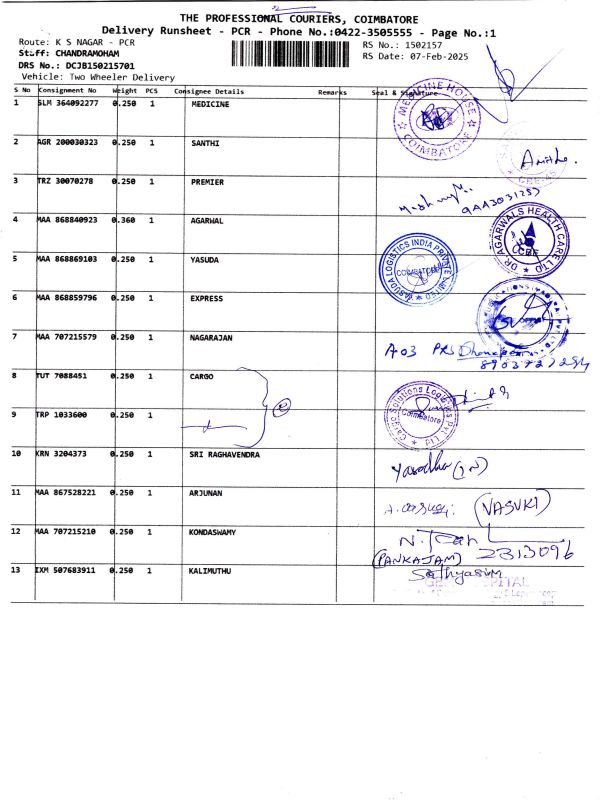 THE PROFESSIONAL COURIERS, COIMBATORE
Delivery Runsheet - PCR - Phone No.:0422-3505555 - Page No.:1
Route: K S NAGAR - PCR
RS No.: 1502157
Staff: CHANDRAMOHAM
RS Date: 07-Feb-2025
DRS No.: DCJB150215701
Vehicle: Two Wheeler Delivery
S No Consignment No Weight PCS Consignee Details Remarks Seal & Signature
1 SLM 364092277 0.250 1 MEDICINE
MEDICINE HOUSE COIMBATORE
2 AGR 200030323 0.250 1 SANTHI
3 TRZ 30070278 0.250 1 PREMIER
4 MAA 868840923 0.360 1 AGARWAL
DR AGARWALS HEALTH CARE LTD CBE
5 MAA 868869103 0.250 1 YASUDA
YASUDA LOGISTICS INDIA PRIVATE LIMITED COIMBATORE
6 MAA 868859796 0.250 1 EXPRESS
7 MAA 707215579 0.250 1 NAGARAJAN
A03
8 TUT 7088451 0.250 1 CARGO
Cargo Solutions Logistics Pvt. Ltd. Coimbatore
9 TRP 1033600 0.250 1
10 KRN 3204373 0.250 1 SRI RAGHAVENDRA
Yasodha
11 MAA 867528221 0.250 1 ARJUNAN
(VASUKI)
12 MAA 707215210 0.250 1 KONDASWAMY
(PANKAJAM) 2313096
13 IXM 507683911 0.250 1 KALIMUTHU